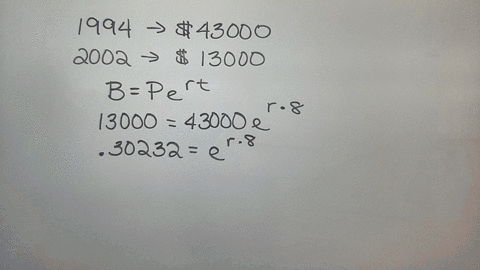 1994 → $43000
2002 → $ 13000
B = Pe^rt
13000 = 43000 e^r·8
.30232 = e^r·8